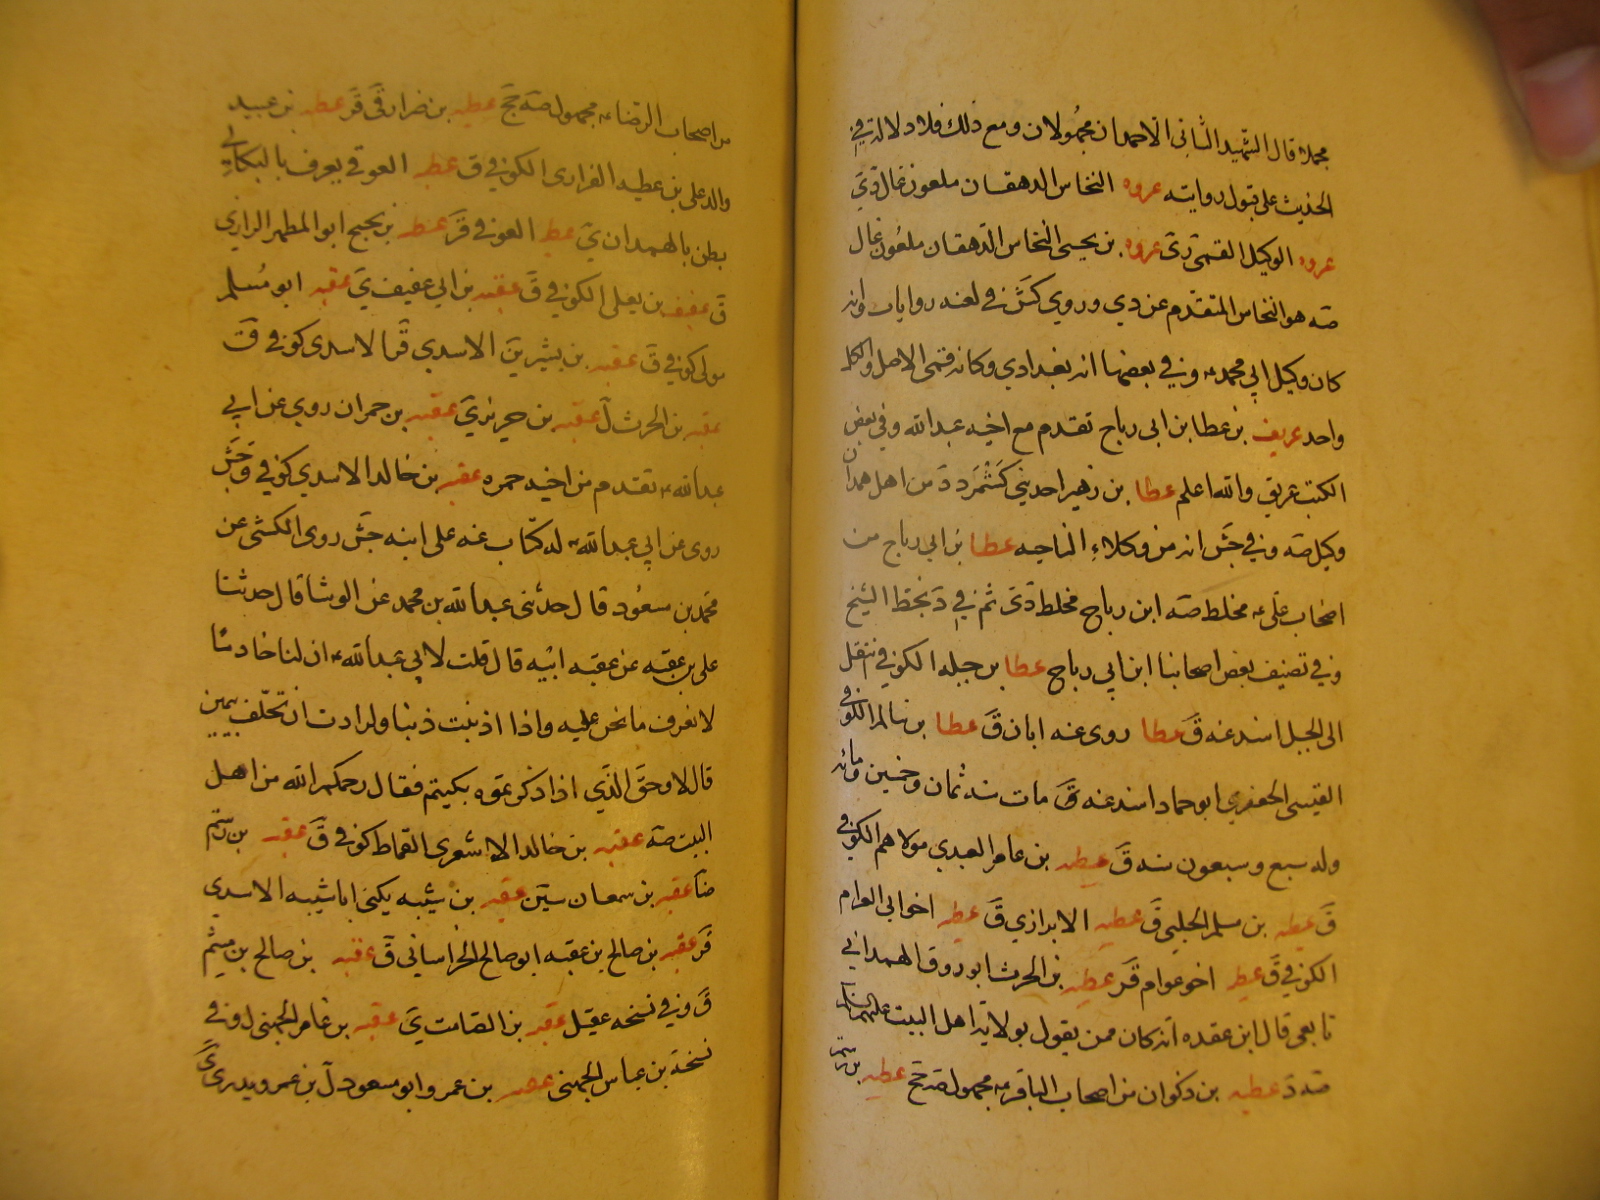 مجملا قال الشهيد الثاني الاحمدان مجهولان ومع ذلك فلا دلالة في
الحديث على قبول روايته عروه النخاس الدهقان ملعون غال دي
عروه الوكيل القمي دي عروه بن يحيى النخاس الدهقان ملعون غال
صه هو النخاس المتقدم عن دي وروي كش في لعنه روايات وانه
كان وكيل ابي محمد وفي بعضها انه بغدادي وكانه قمي الاصل والكل
واحد عريف بن عطا بن ابى رباح تقدم مع اخيه عبد الله وفي بعض
الكتب عريق والله اعلم عطا بن زهير احديني كشمرد د من اهل همدان
وكيل صه وفي جش انه من وكلاء الناحيه عطا بن ابي رباح من
اصحاب على مخلط صه ابن رباح مخلط دى ثم في د بخط الشيخ
وفي تصنيف بعض اصحابنا ابن ابي رباح عطا بن جبله الكوفي انتقل
الى الجبل اسند عنه ق عطا روى عنه ابان ق عطا بن سالم الكوفي
القيسي الجعفري ابو حماد اسند عنه ق مات سنه ثمان وخمسين ومائه
وله سبع وسبعون سنه ق عطيه بن عامر العبدي مولاهم الكوفي
ق عطيه بن مسلم الجبلي ق عطيه الابزازي ق عطيه اخو ابي العوام
الكوفي ق عطيه اخو عوام قر عطيه بن الحرث ابو روق الهمداني
تابعي قال ابن عقده انه كان ممن يقول بولاية اهل البيت عليهم السلم
صه د عطيه بن ذكوان من اصحاب الباقر مجهول صه جخ عطيه بن رستم
من اصحاب الرضا مجهول صه جخ عطيه بن ضرار ق قر عطيه بن عبيد
والد على بن عطيه الفزارى الكوفي ق عطيه العوفي يعرف بالبكالي
بطن بالهمدان ي عطيه العوفي قر عطيه بن نجيح ابو المطهر الرازي
ق عفيف بن يعلى الكوفي ق عقبه بن ابي عفيف ي عقبه ابو مسلم
مولى كوفي ق عقبه بن بشير ين الاسدي قر الاسدى كوفي ق
عقبه بن الحرث ل عقبه بن حريز ي عقبه بن حمران روى عن ابي
عبد الله تقدم من اخيه حمزه عقبه بن خالد الاسدي كوفي ق وجش
روى عن ابي عبد الله له كتاب عنه على ابنه جش روى الكشي عن
محمد بن مسعود قال حدثني عبد الله بن محمد عن الوشا قال حدثنا
على بن عقبه عن عقبه ابيه قال قلت لابي عبد الله ان لنا خادما
لا تعرف ما نحن عليه واذا اذنبت ذنبا وارادت ان تحلف بيمين
قال لا وحق الذي اذا ذكرتموه بكيتم فقال رحمكم الله من اهل
البيت صه عقبه بن خالد الاشعرى القماط كوفي ق عقبه بن رستم
ضا عقبه بن سمعان سين عقبه بن شيبه يكنى ابا شيبه الاسدي
قر عقبه بن صالح بن عقبه ابو صالح الخراساني ق عقبه بن صالح بن ميثم
ق وفي نسخه عقيل عقبه بن الصامت ي عقبه بن عامر الجهني ل وفي
نسخة بن عباس الجهني عقبه بن عمرو ابو مسعود ل بن عمرو بدري ي